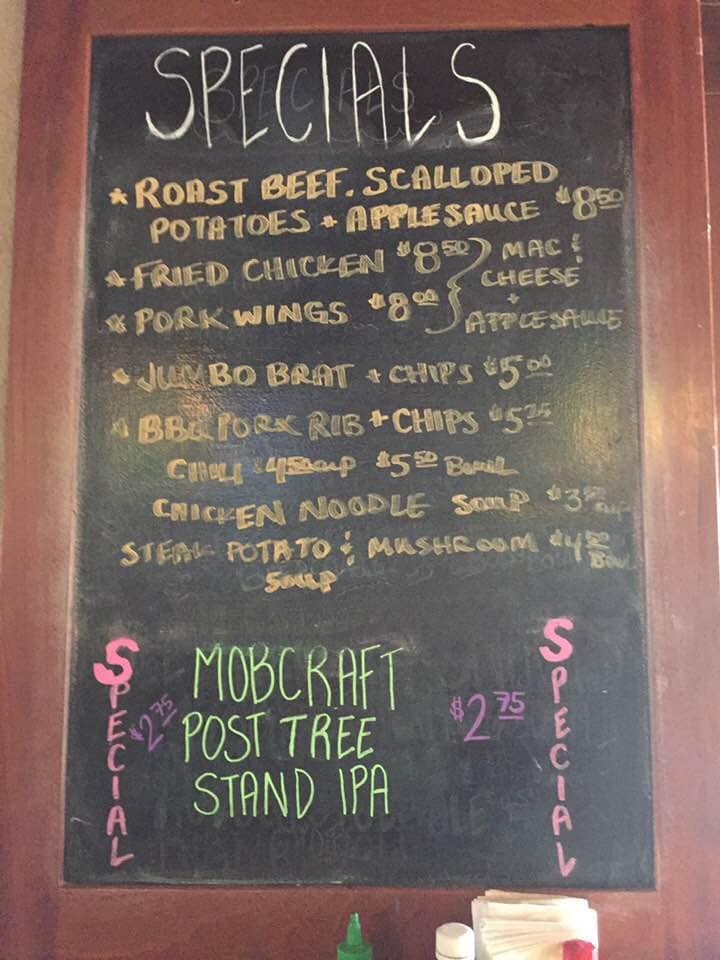 SPECIALS
* ROAST BEEF. SCALLOPED
POTATOES + APPLESAUCE $8.50
* FRIED CHICKEN $8.50 } MAC &
CHEESE
* PORK WINGS $8.00 +
APPLESAUCE
* JUMBO BRAT + CHIPS $5.00
* BBQ PORK RIB + CHIPS $5.75
CHILI $4.50 CUP $5.50 BOWL
CHICKEN NOODLE SOUP
STEAK POTATO & MUSHROOM $4.50
SOUP BOWL
SPECIAL
$2.75
MOBCRAFT
POST TREE
STAND IPA
$2.75
SPECIAL